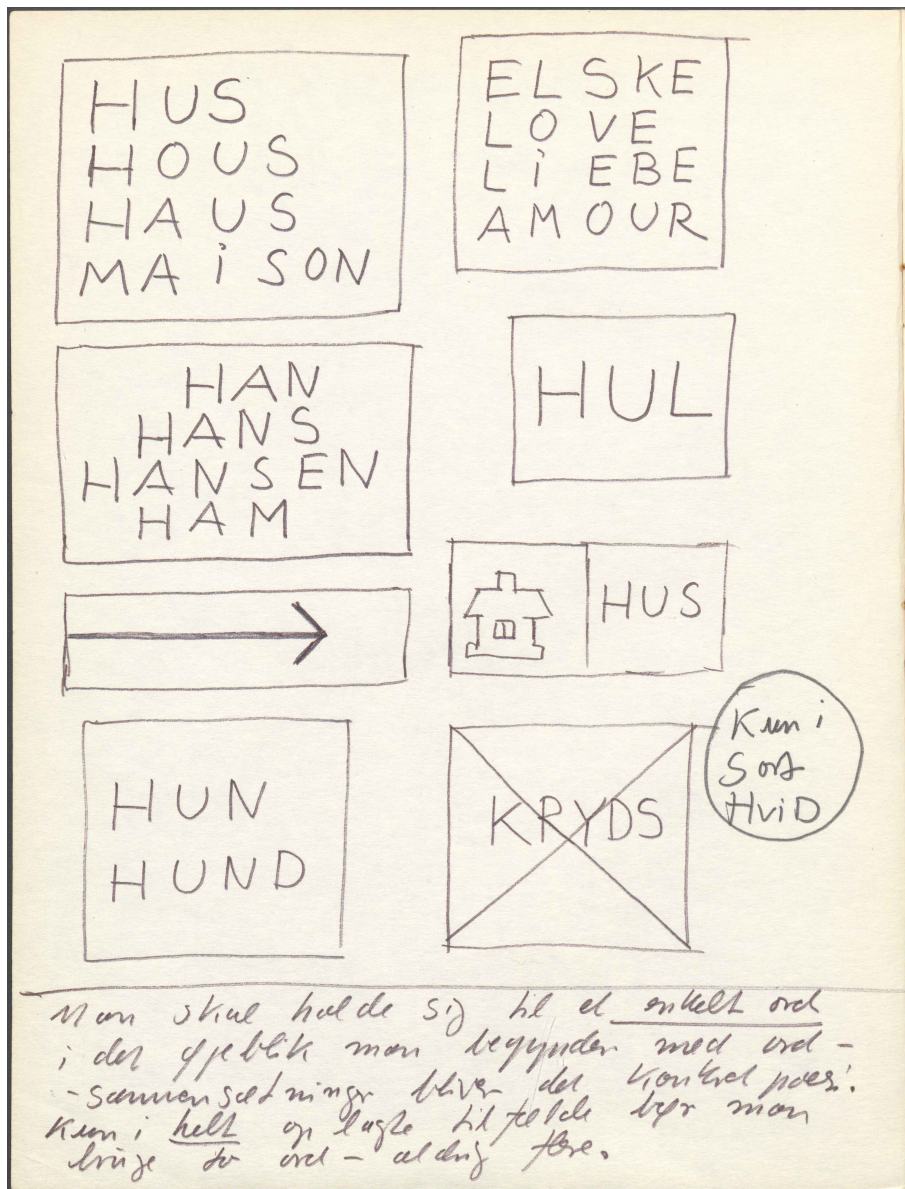 HUS
HOUS
HAUS
MAiSON
ELSKE
LOVE
LiEBE
AMOUR
HAN
HANS
HANSEN
HAM
HUL
HUS
HUN
HUND
KRYDS
Kun i
Sort
HviD
Man skal holde sig til et enkelt ord
i det øjeblik man begynder med ord-
-sammensætninger bliver det konkret poesi.
Kun i helt oplagte tilfælde bør man
bruge to ord – aldrig flere.